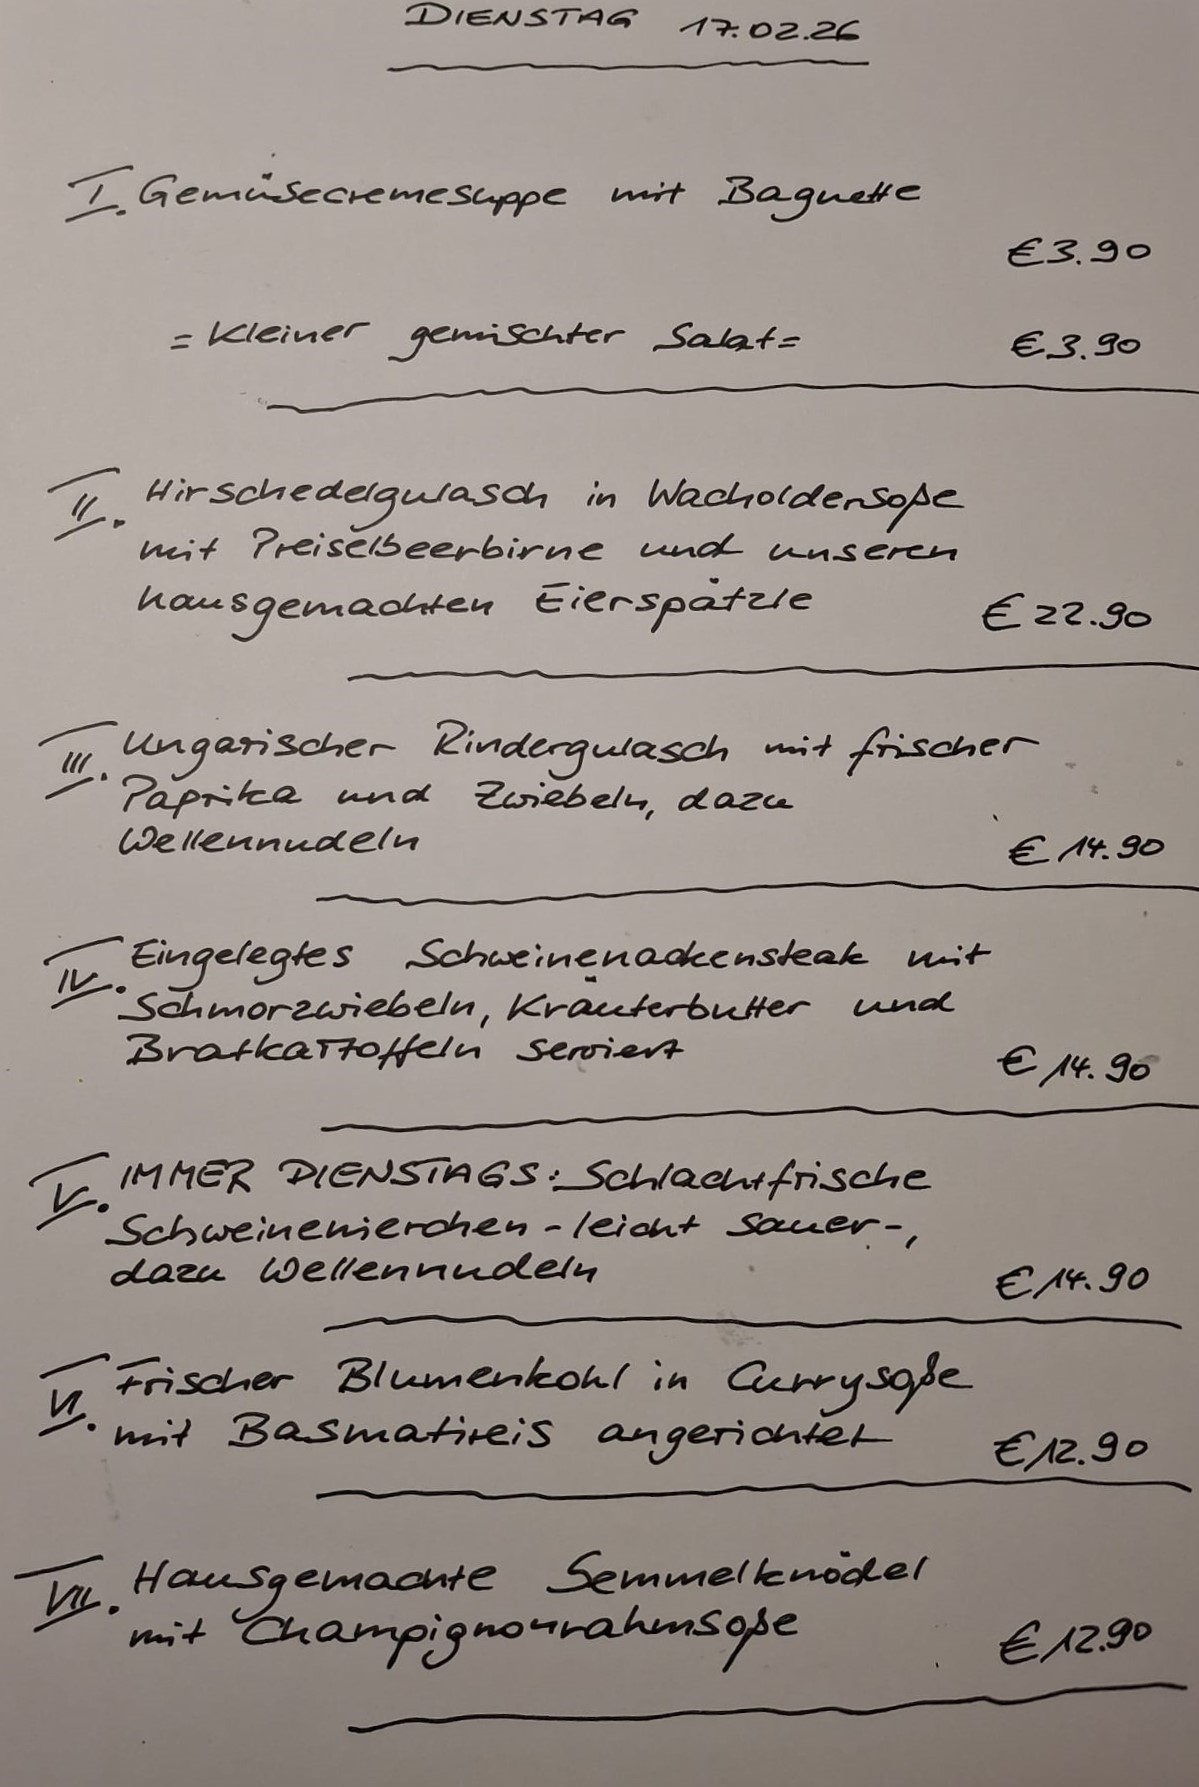 DIENSTAG 17.02.26
I. Gemüsecremesuppe mit Baguette
€ 3.90
= Kleiner gemischter Salat = € 3.90
II. Hirschedelgulasch in Wacholdersoße
mit Preiselbeerbirne und unseren
hausgemachten Eierspätzle € 22.90
III. Ungarischer Rindergulasch mit frischer
Paprika und Zwiebeln, dazu
Wellennudeln € 14.90
IV. Eingelegtes Schweinenackensteak mit
Schmorzwiebeln, Kräuterbutter und
Bratkartoffeln serviert € 14.90
V. IMMER DIENSTAGS: Schlachtfrische
Schweinenierchen - leicht sauer -,
dazu Wellennudeln € 14.90
VI. Frischer Blumenkohl in Currysoße
mit Basmatireis angerichtet € 12.90
VII. Hausgemachte Semmelknödel
mit Champignonrahmsoße € 12.90